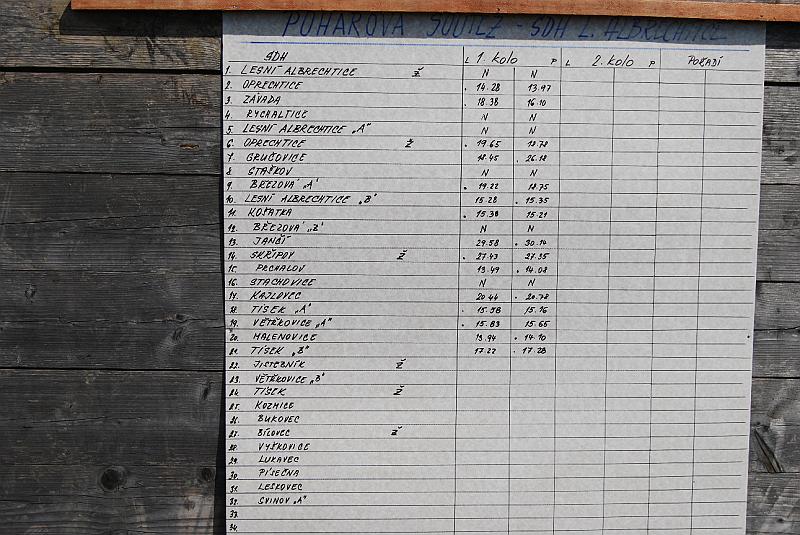 POHÁROVÁ SOUTĚŽ - SDH L. ALBRECHTICE
SDH L 1. kolo P L 2. kolo P POŘADÍ
1. LESNÍ ALBRECHTICE Ž N N
2. OPRECHTICE . 14.28 13.97
3. ZÁVADA . 18.38 16.10
4. RYCHALTICE N N
5. LESNÍ ALBRECHTICE „A" N N
6. OPRECHTICE Ž . 19.65 18.78
7. GRUČOVICE 18.45 . 26.18
8 STAŠKOV N N
9. BŘEZOVÁ „A" . 19.22 18.75
10. LESNÍ ALBRECHTICE „B" 15.28 . 15.35
11. KOŠATKA . 15.38 15.21
12. BŘEZOVÁ „B" N N
13. JANČÍ 29.58 . 30.14
14. SKŘIPOV Ž . 27.43 27.35
15. PRCHALOV 13.49 . 14.08
16. STACHOVICE N N
17. KAJLOVEC 20.44 . 20.78
18. TÍSEK „A" . 15.58 15.76
19. VĚTŘKOVICE „A" . 15.83 15.65
20. HALENOVICE 13.94 . 14.10
21. TÍSEK „B" 17.22 . 17.28
22. JISTEBNÍK Ž
23. VĚTŘKOVICE „B"
24. TÍSEK Ž
25. KOZMICE
26. BUKOVEC
27. BÍLOVEC Ž
28. VYŠKOVICE
29. LUKAVEC
30. PÍSEČNÁ
31. LESKOVEC
32. SVINOV „A"
33.
34.